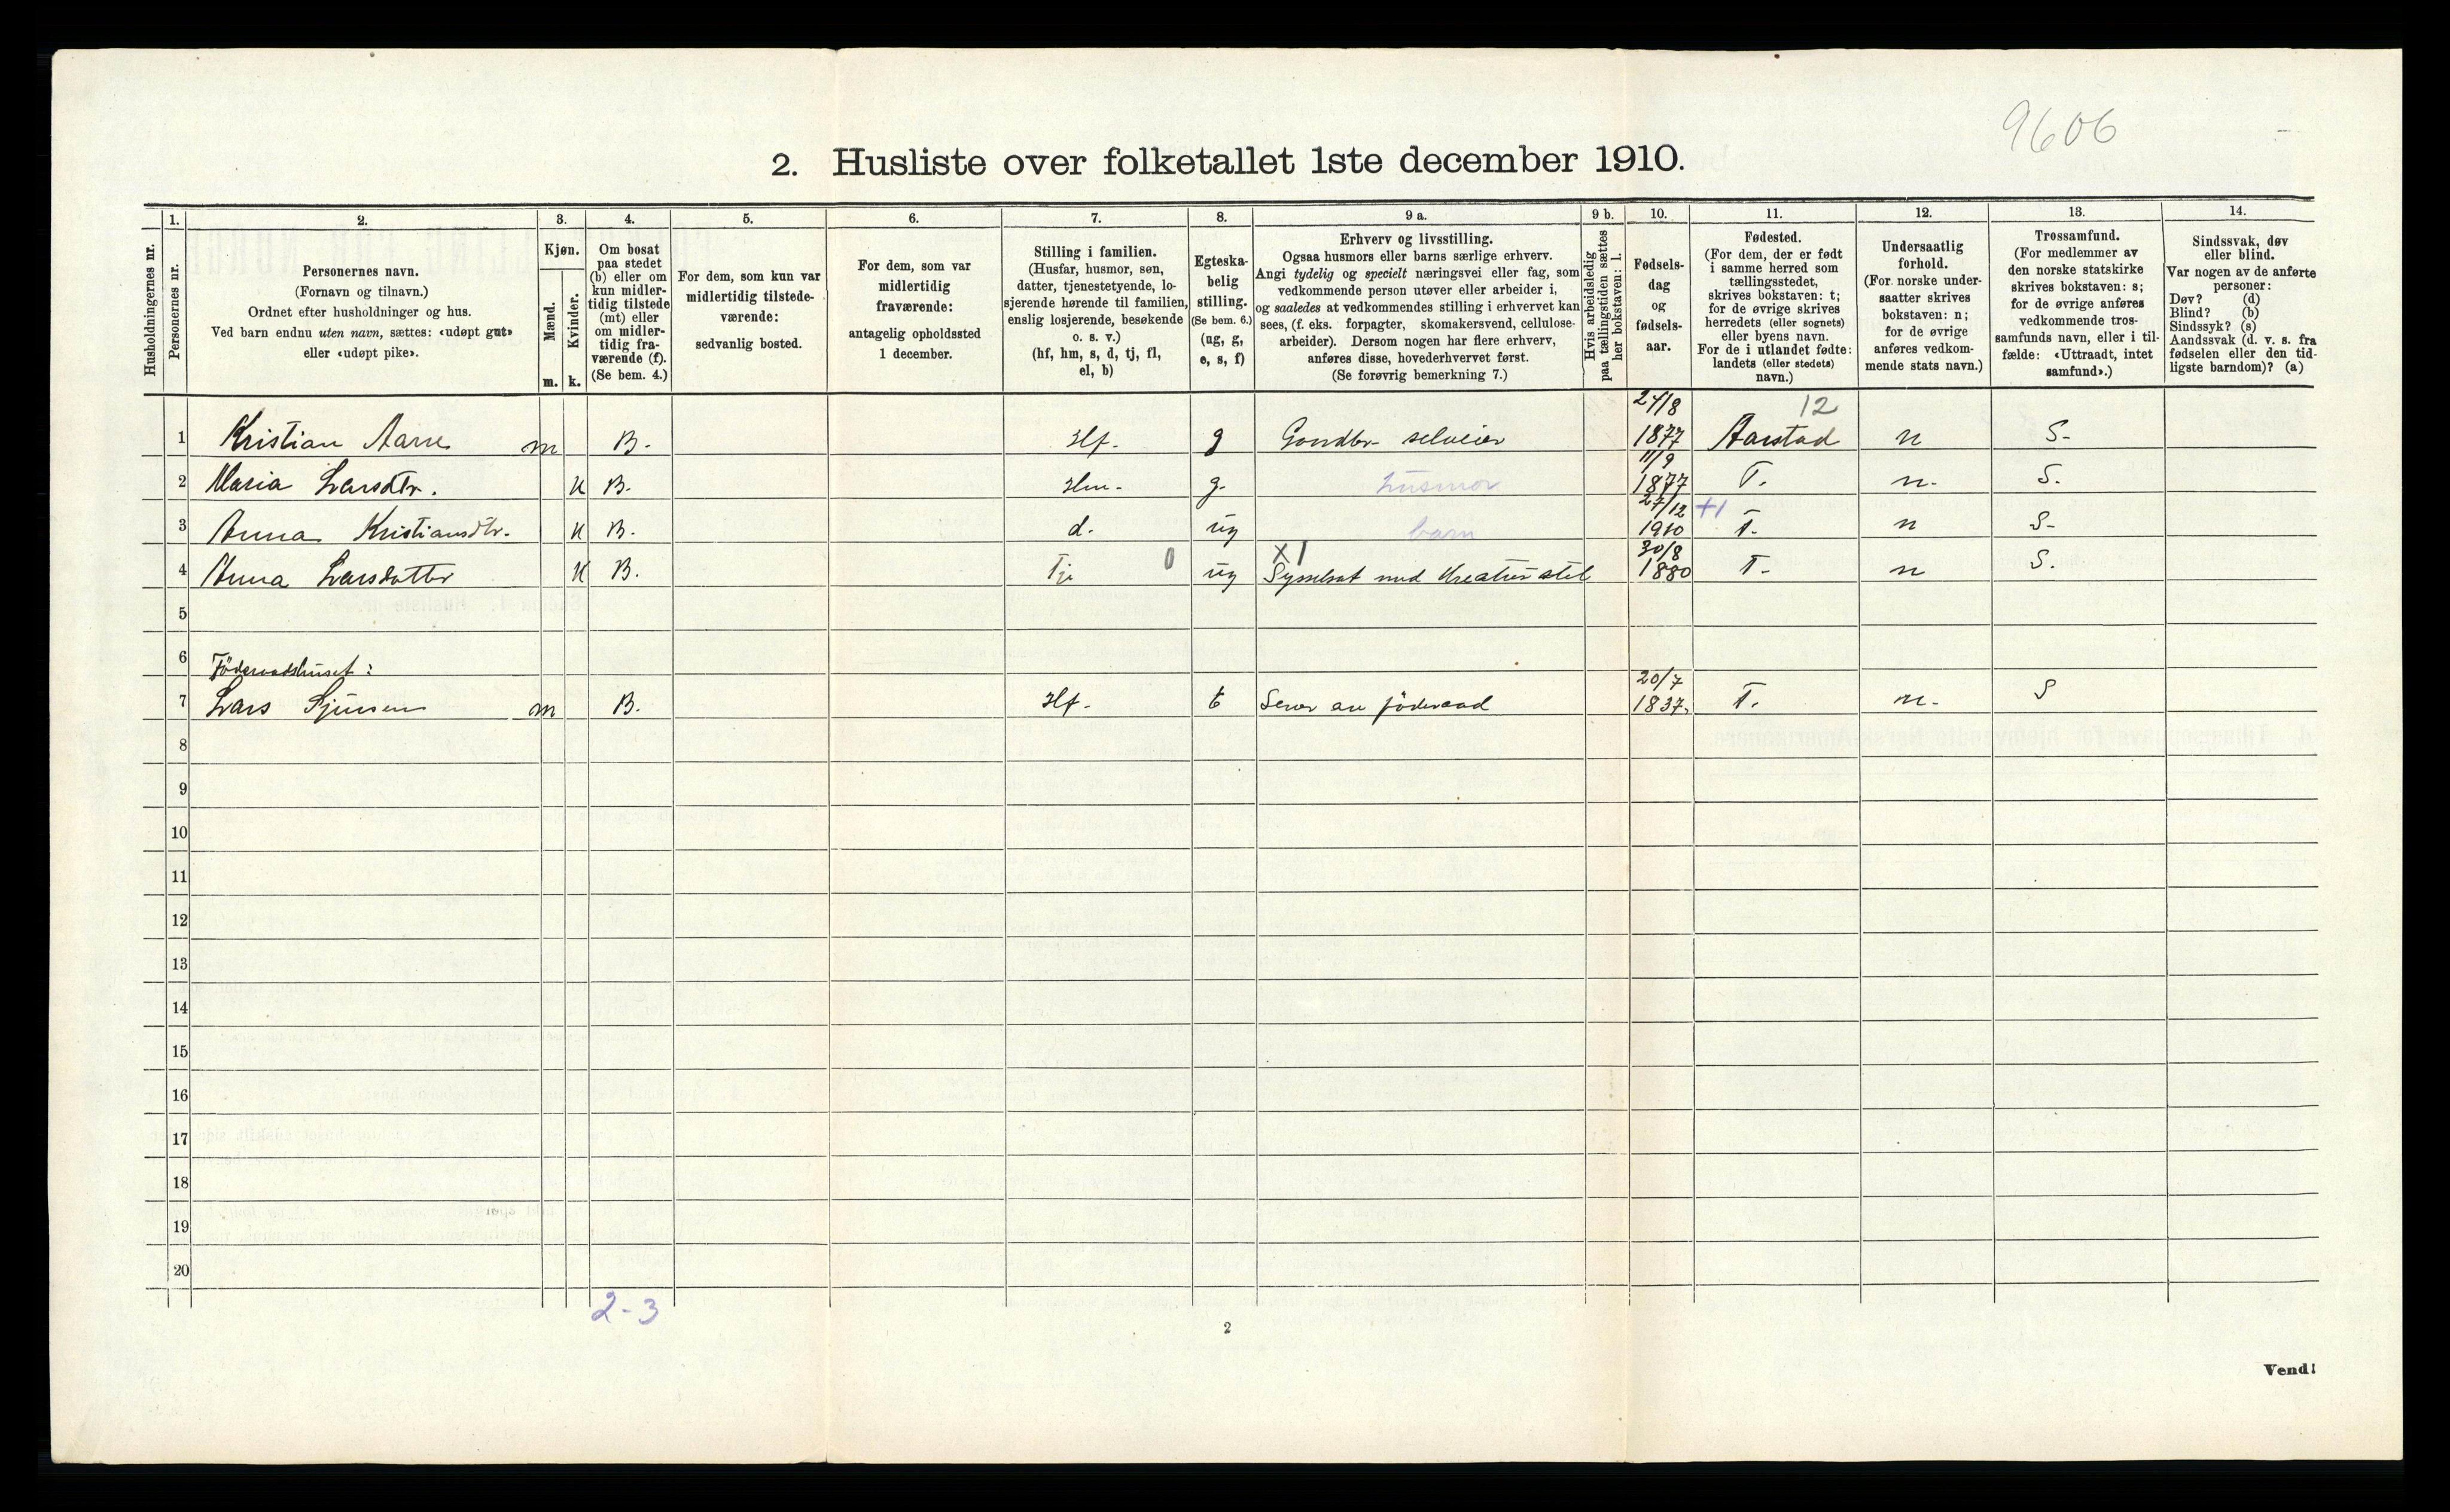 9606
2. Husliste over folketallet 1ste december 1910.
Husholdningernes nr.
1.
Personernes nr.
2.
Personernes navn.
(Fornavn og tilnavn.)
Ordnet efter husholdninger og hus.
Ved barn endnu uten navn, sættes: «udøpt gut»
eller «udøpt pike».
3.
Kjøn.
Mænd.
Kvinder.
m. k.
4.
Om bosat
paa stedet
(b) eller om
kun midler-
tidig tilstede
(mt) eller
om midler-
tidig fra-
værende (f).
(Se bem. 4.)
5.
For dem, som kun var
midlertidig tilstede-
værende:
sedvanlig bosted.
6.
For dem, som var
midlertidig
fraværende:
antagelig opholdssted
1 december.
7.
Stilling i familien.
(Husfar, husmor, søn,
datter, tjenestetyende, lo-
sjerende hørende til familien,
enslig losjerende, besøkende
o. s. v.)
(hf, hm, s, d, tj, fl,
el, b)
8.
Egteska-
belig
stilling.
(Se bem. 6.)
(ug, g,
e, s, f)
9 a.
Erhverv og livsstilling.
Ogsaa husmors eller barns særlige erhverv.
Angi tydelig og specielt næringsvei eller fag, som
vedkommende person utøver eller arbeider i,
og saaledes at vedkommendes stilling i erhvervet kan
sees, (f. eks. forpagter, skomakersvend, cellulose-
arbeider). Dersom nogen har flere erhverv,
anføres disse, hovederhvervet først.
(Se forøvrig bemerkning 7.)
9 b.
Hvis arbeidsledig
paa tællingstiden sættes
her bokstaven: l.
10.
Fødsels-
dag
og
fødsels-
aar.
11.
Fødested.
(For dem, der er født
i samme herred som
tællingsstedet,
skrives bokstaven: t;
for de øvrige skrives
herredets (eller sognets)
eller byens navn.
For de i utlandet fødte:
landets (eller stedets)
navn.)
12.
Undersaatlig
forhold.
(For norske under-
saatter skrives
bokstaven: n;
for de øvrige
anføres vedkom-
mende stats navn.)
13.
Trossamfund.
(For medlemmer av
den norske statskirke
skrives bokstaven: s;
for de øvrige anføres
vedkommende tros-
samfunds navn, eller i til-
fælde: «Uttraadt, intet
samfund».)
14.
Sindssvak, døv
eller blind.
Var nogen av de anførte
personer:
Døv? (d)
Blind? (b)
Sindssyk? (s)
Aandssvak (d. v. s. fra
fødselen eller den tid-
ligste barndom)? (a)
1 Kristian m B. Hf. g selveier 1877 12 Aarstad n S.
2 Maria Larsdtr. K B. Hm. g. husmor 11/9 1877 T. n. S.
3 Anna Kristiansdtr. K B. d. ug barn 27/12 1910 +1 T. n S.
4 Anna Larsdatter K B. Tj. 0 ug x1 Sysselsat med Kreaturstel 30/8 1880 T. n S.
5
6 Föderaadshuset:
7 Lars m B. Hf. e av föderaad 20/7 1837. T. n. S
8
9
10
11
12
13
14
15
16
17
18
19
20
2-3
2
Vend!